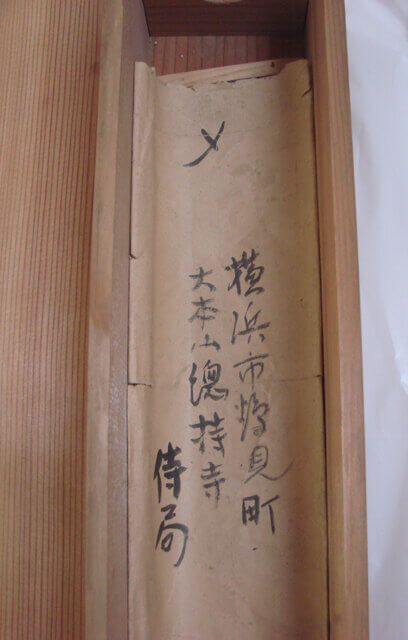 〆
横浜市鶴見町
大本山總持寺
侍局